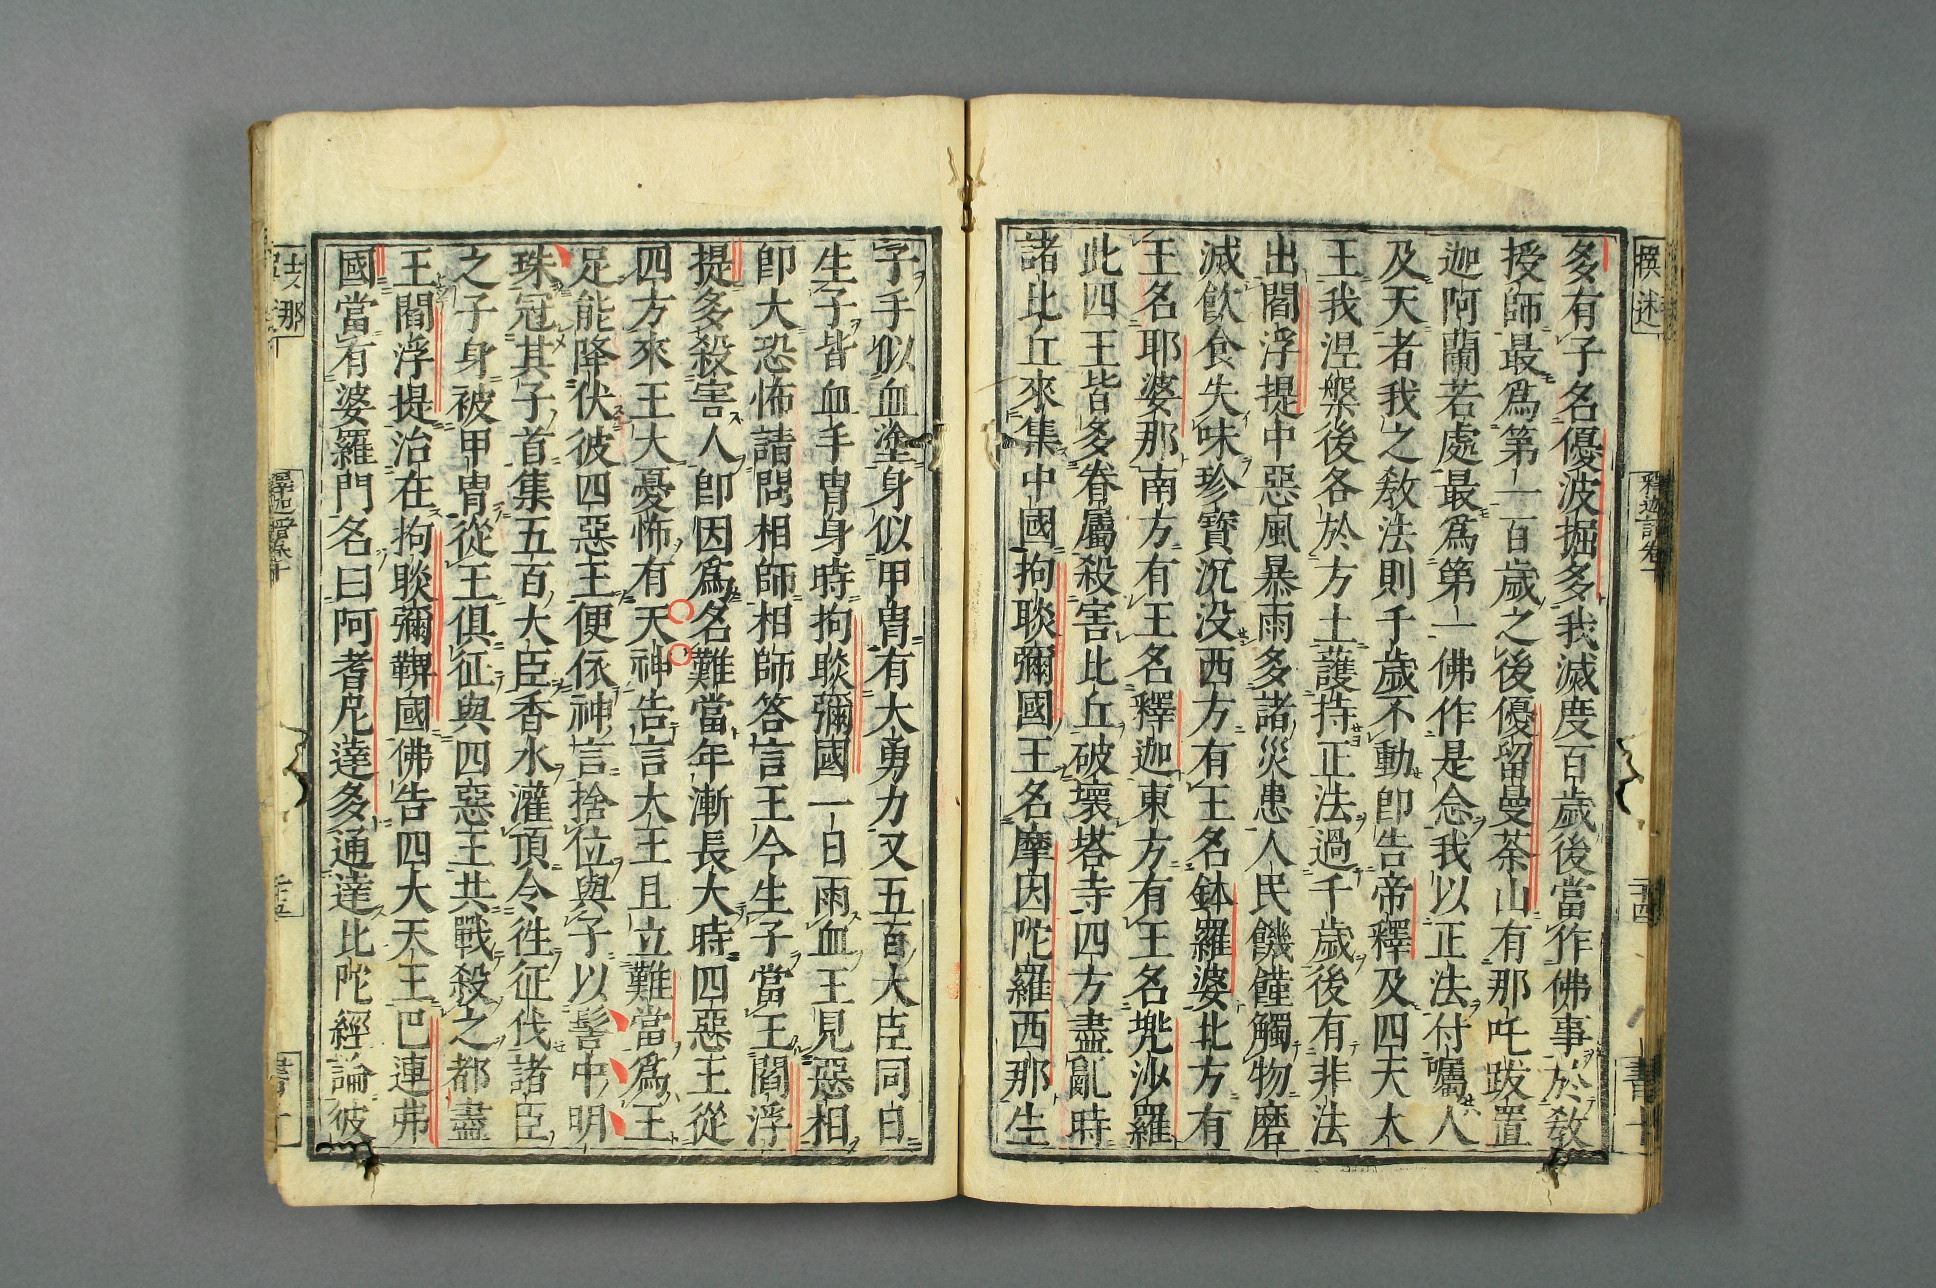 多有子名優波掘多我滅度百歲後當作佛事於教
授師最爲第一百歲之後優留曼荼山有那吒跋置
迦阿蘭若處最爲第一佛作是念我以正法付囑人
及天者我之教法則千歲不動卽告帝釋及四天大
王我涅槃後各於方土護持正法過千歲後有非法
出閻浮提中惡風暴雨多諸災患人民饑饉觸物磨
滅飲食失味珍寶沉没西方有王名鉢羅婆北方有
王名耶婆那南方有王名釋迦東方有王名兠沙羅
此四王皆多眷屬殺害比丘破壞塔寺四方盡亂時
諸比丘來集中國拘睒彌國王名摩因陀羅西那生
子手似血塗身似甲胄有大勇力又五百大臣同日
生子皆血手胄身時拘睒彌國一日雨血王見惡相
卽大恐怖請問相師相師答言王今生子當王閻浮
提多殺害人卽因爲名難當年漸長大時四惡王從
四方來王大憂怖有天神告言大王且立難當爲王
足能降伏彼四惡王便依神言捨位與子以髻中明
珠冠其子首集五百大臣香水灌頂令徃征伐諸臣
之子身被甲胄從王俱征與四惡王共戰殺之都盡
王閻浮提治在拘睒彌鞞國佛告四大天王巴連弗
國當有婆羅門名曰阿耆尼達多通達比陀經論彼